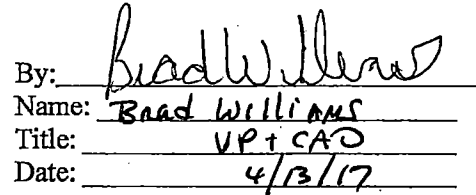 By: Brad Williams
Name: Brad Williams
Title: VP + CAO
Date: 4/13/17